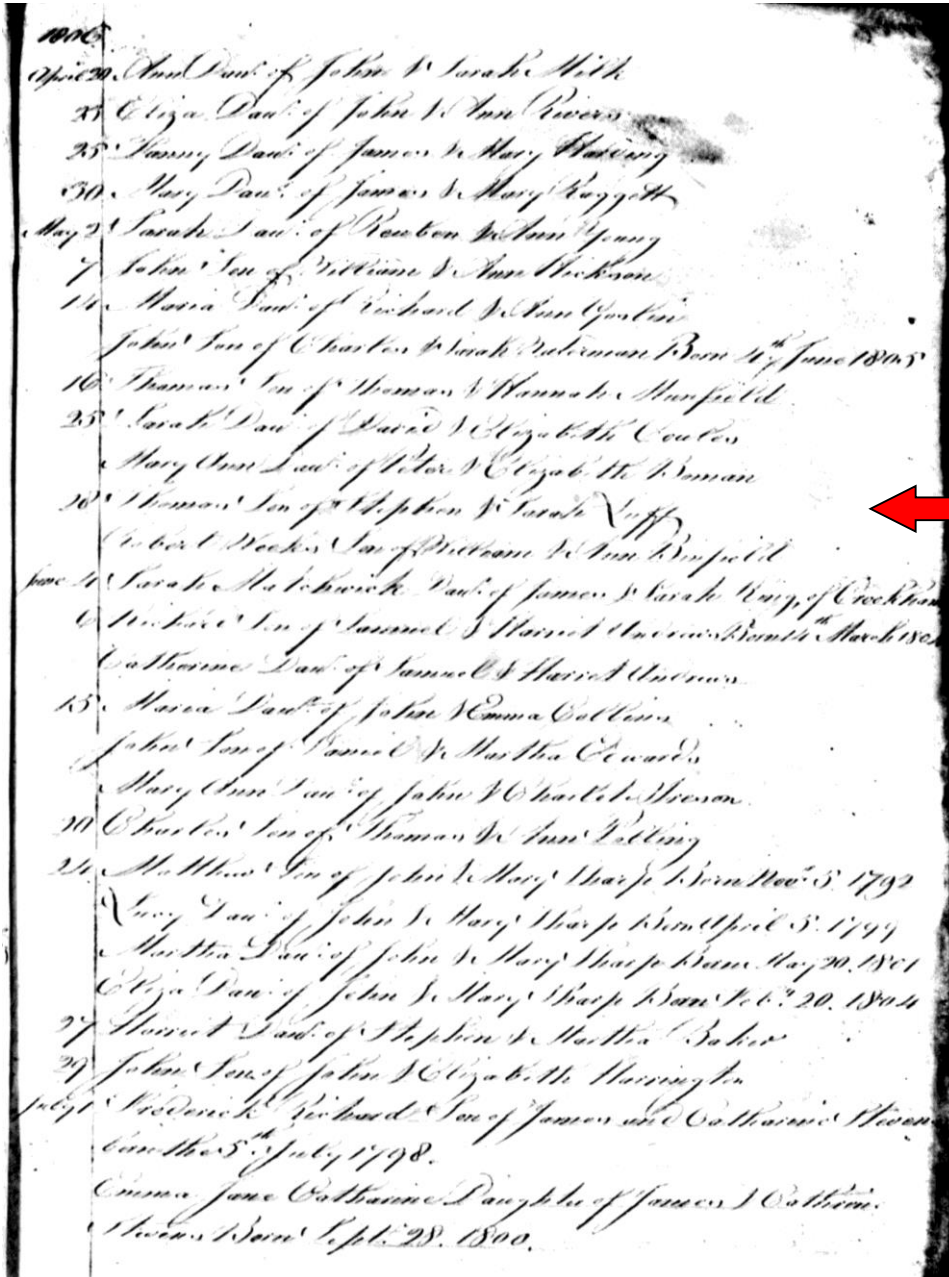 1806
April 20 Ann Daur. of John & Sarah Milk
25 Eliza Daur. of John & Ann Rivers
25 Fanny Daur. of James & Mary Harding
30 Mary Daur. of James & Mary Raggett
May 2 Sarah Daur. of Reuben & Ann Young
7 John Son of William & Ann Hickson
14 Maria Daur. of Richard & Ann Goslin
John Son of Charles & Sarah Born 4th June 1805
16 Thomas Son of Thomas & Hannah Munfield
25 Sarah Daur. of David & Elizabeth Coules
Mary Ann Daur. of Peter & Elizabeth
28 Thomas Son of Stephen & Sarah Luff
Robert Weeks Son of William & Ann Binfield
June 4 Sarah Daur. of James & Sarah King, of Crookham
6 Richard Son of Samuel & Harriet Andrews Born 14th March
Catherine Daur. of Samuel & Harriet Andrews
15 Maria Daur. of John & Emma Collins
John Son of Daniel & Martha Edwards
Mary Ann Daur. of John & Charlot
20 Charles Son of Thomas & Ann
24 Matthew Son of John & Mary Tharp Born Novr. 5. 1792
Lucy Daur. of John & Mary Tharp Born April 5. 1799
Martha Daur. of John & Mary Tharp Born May 20. 1801
Eliza Daur. of John & Mary Tharp Born Feby. 20. 1804
27 Harriet Daur. of Stephen & Martha Baker
29 John Son of John & Elizabeth Harrington
July 1 Frederick Richard Son of James and Catharine Stevens
born the 5th July 1798.
Emma Jane Catharine Daughter of James & Catharine
Stevens Born Sept. 28. 1800.